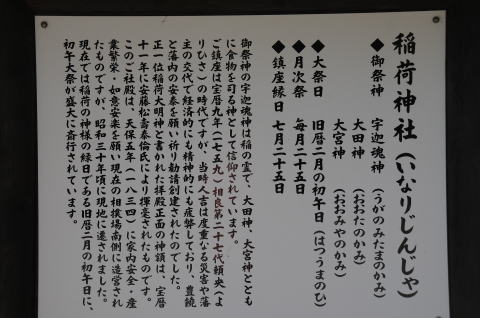 稲荷神社(いなりじんじゃ)
◆御祭神 宇迦魂神(うがのみたまのかみ)
大田神(おおたのかみ)
大宮神(おおみやのかみ)
◆大祭日 旧暦二月の初午日(はつうまのひ)
◆月次祭 毎月二十五日
◆鎮座縁日 七月二十五日
御祭神の宇迦魂神は稲の霊で、大田神、大宮神ととも
に食物を司る神として信仰されています。
ご鎮座は宝暦九年(一七五九)相良第二十七代頼央(よ
りひさ)の時代ですが、当時人吉は度重なる災害や藩
主の交代で経済的にも精神的にも疲弊しており、豊饒
と藩内の安泰を願い祈り勧請創建されたのでした。
正一位稲荷大明神と書かれた拝殿正面の神額は、宝暦
十一年に安藤松壽泰倫氏により揮毫されたものです。
このご社殿は、天保五年(一八三四)に家内安全・産
業繁栄・如意安楽を願い現在の相撲場南側に造営され
たものですが、昭和三十年頃に現地に遷されました。
現在では稲荷の神様の縁日である旧暦二月の初午日に、
初午大祭が盛大に斎行されています。